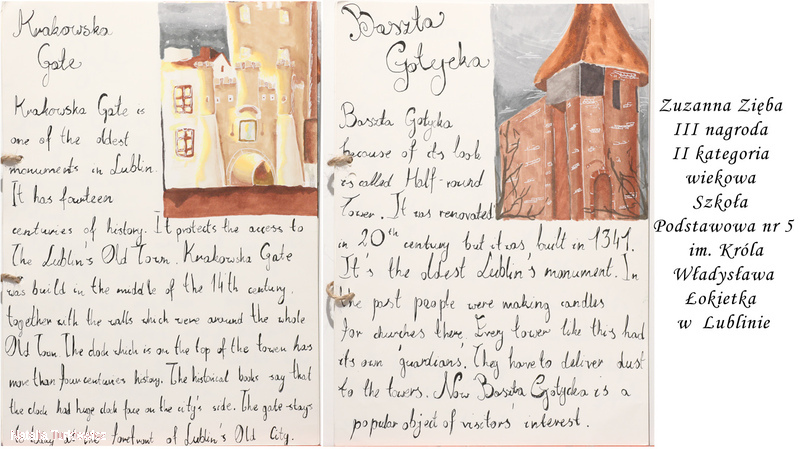 Krakowska
Gate
Krakowska Gate is
one of the oldest
monuments in Lublin.
It has fourteen
centuries of history. It protects the access to
The Lublin's Old Town. Krakowska Gate
was build in the middle of the 14th century.
together with the walls which were around the whole
Old Toon The clock which is on the top of the towen has
more than four centuries history. The historical books say that
the clock had huge clock face on the city's side. The gate stays
today at the forefront of Lublin's Old City.
Baszta
Gotycka
Baszta Gotycka
because of its look
is called Half-round
Tower. It was renovated
in 20th century but it was built in 1341.
It's the oldest Lublin's monument. In
the past people were making candles
for churches there. Every tower like this had
it's own guardians. They have to deliver dust
to the towers. Now Baszta Gotycka is a
popular object of visitors' interest.
Zuzanna Zięba
III nagroda
II kategoria
wiekowa
Szkoła
Podstawowa nr 5
im. Króla
Władysława
Łokietka
w Lublinie